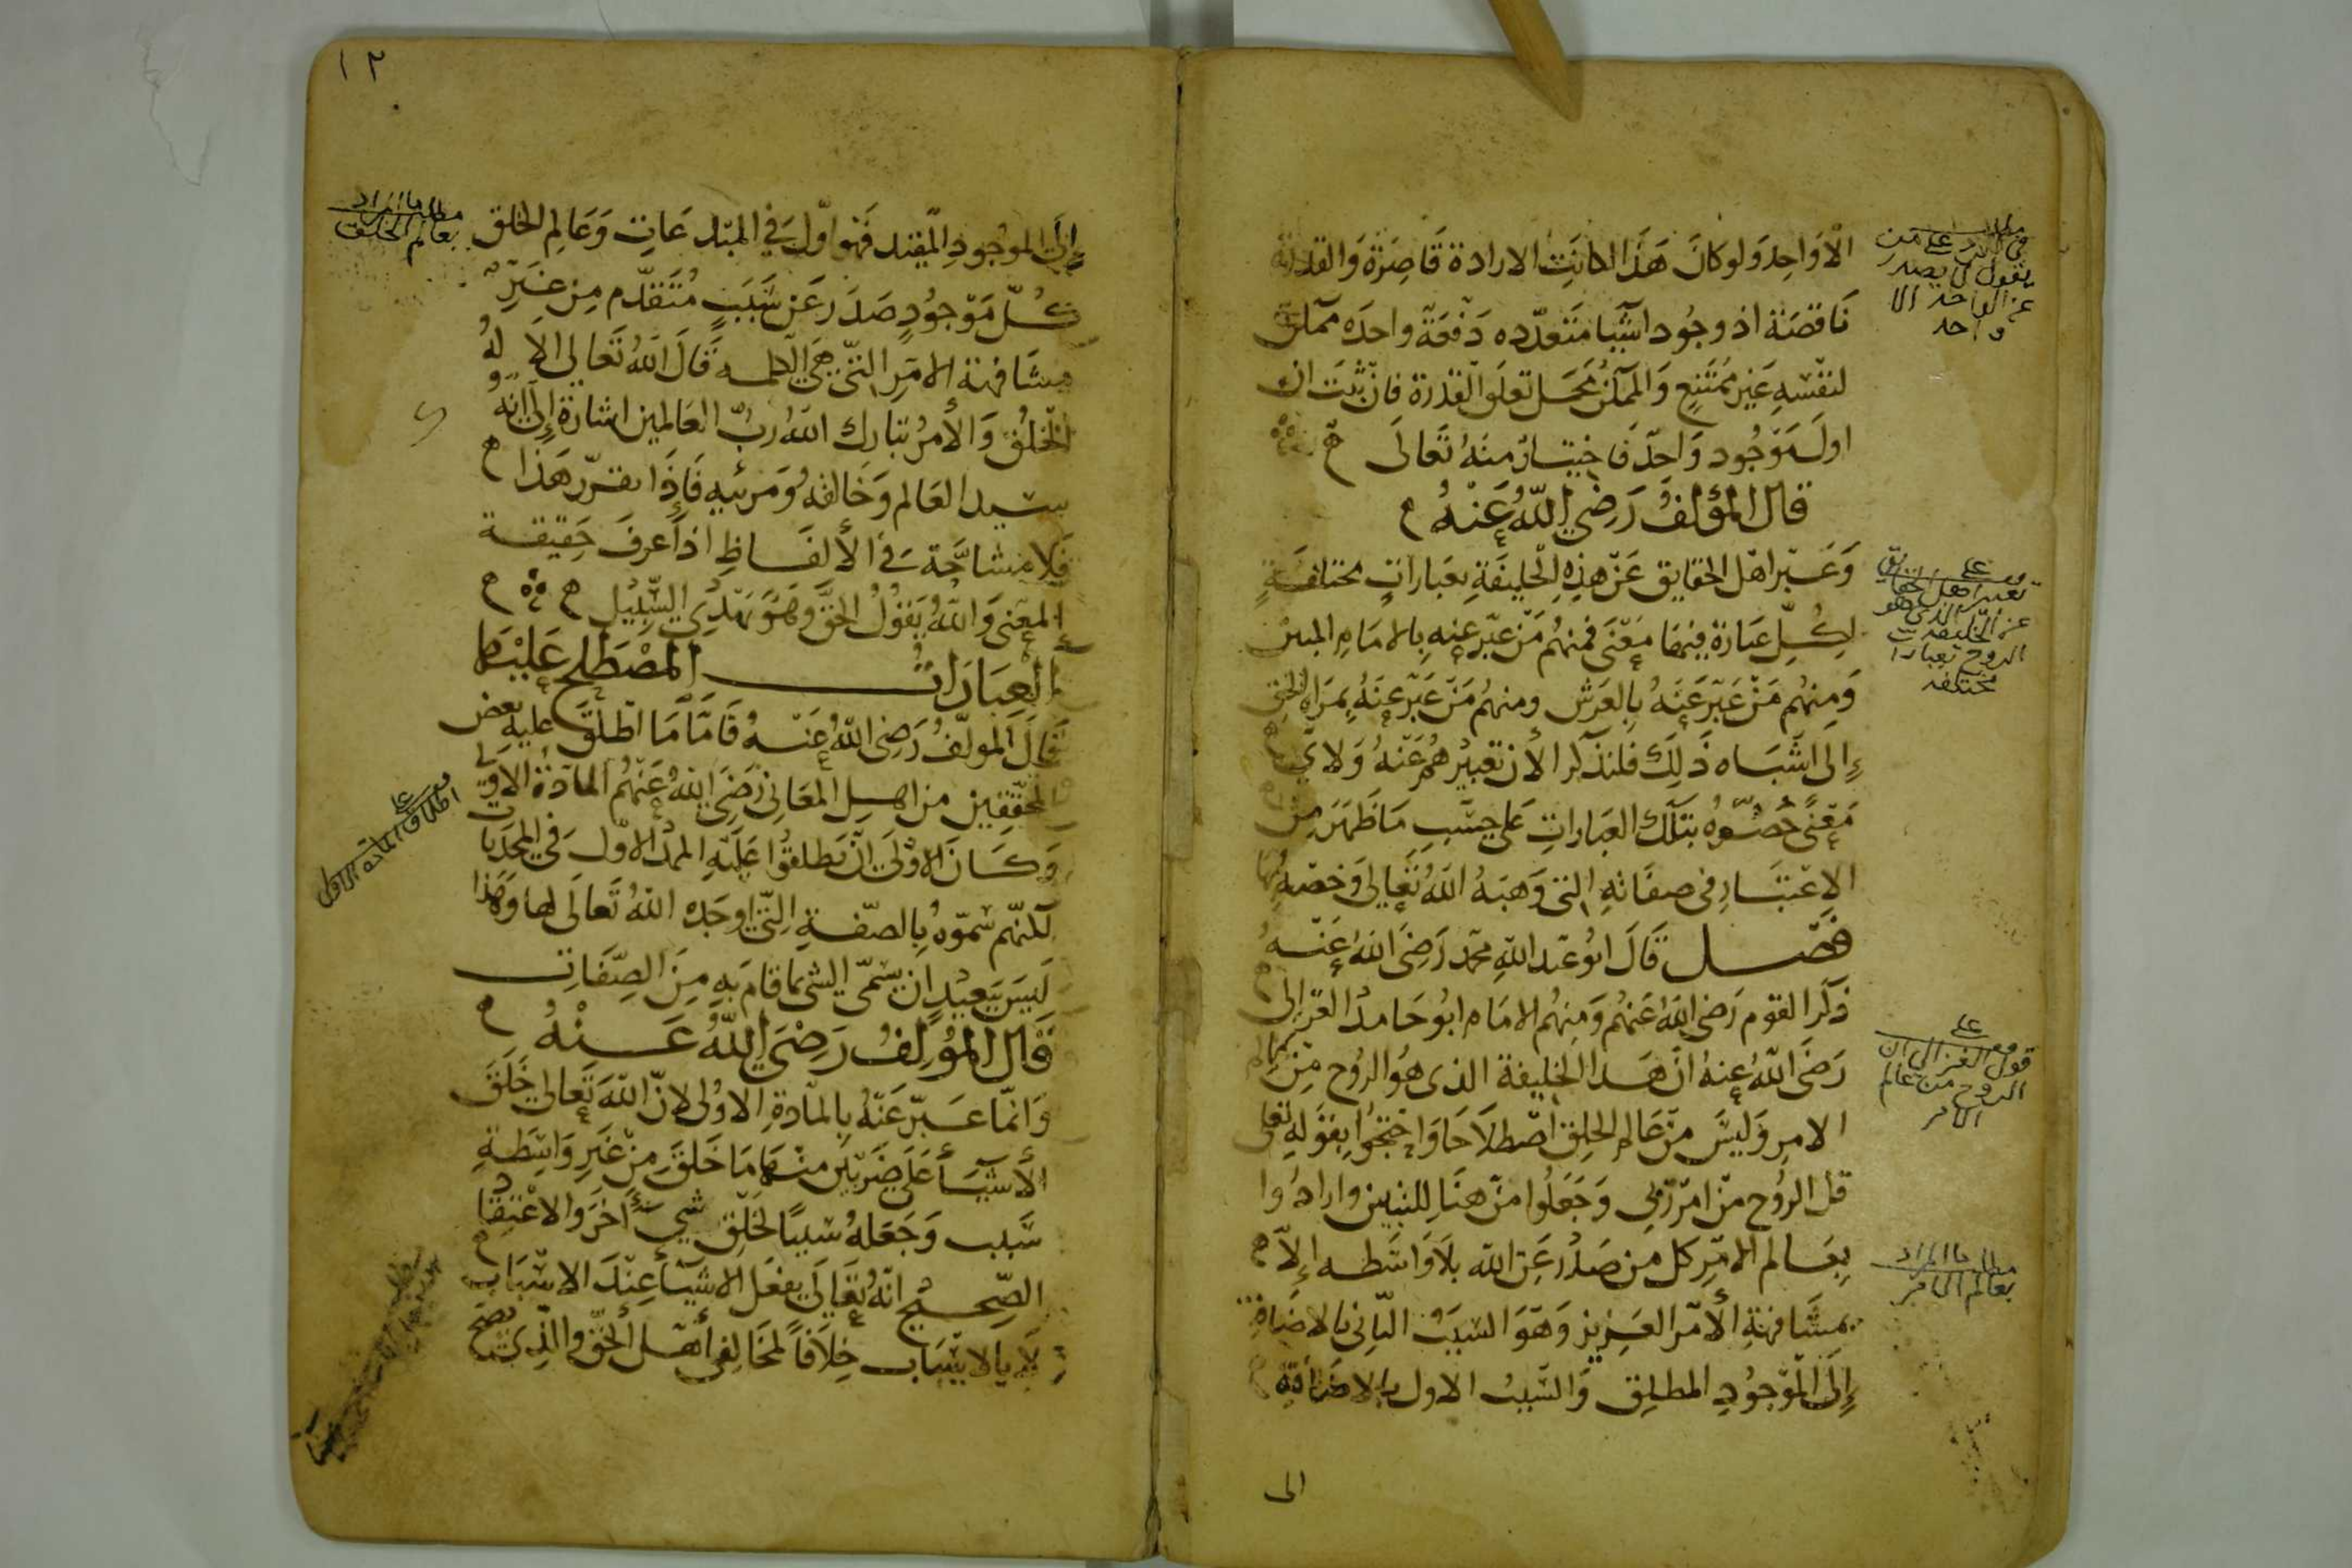 الا واحد ولو كان هذا لكانت الارادة قاصرة والقدرة
ناقصة اذ وجود اشيا متعدده دفعة واحده ممكن
لنفسه غير ممتنع والممكن محل تعلق القدرة فان ثبت ان
اول موجود واحد فاختيار منه تعالى
قال المؤلف رضي الله عنه
وعبر اهل الحقايق عن هذه الخليفة بعبارات مختلفة
لكل عبارة منها معنى فمنهم من عبر عنه بالامام المبين
ومنهم من عبر عنه بالعرش ومنهم من عبر عنه بمراة الحق
إلى اشباه ذلك فلنذكر الأن تعبيرهم عنه ولاي
معنى خصوه بتلك العبارات على حسب ما ظهر من
الاعتبار في صفاته التي وهبه الله تعالى وخصه بها
فصل قال ابو عبد الله محمد رضي الله عنه
ذكر القوم رضي الله عنهم ومنهم الامام ابو حامد الغزالي
رضي الله عنه ان هذا الخليفة الذى هو الروح من عالم
الامر وليس من عالم الخلق اصطلاحا واحتجوا بقوله تعالى
قل الروح من امر ربي وجعلوا من هنا للتبيين وارادوا
بعالم الامر كل من صدر عن الله بلا واسطه إلا
بمشافهة الأمر العزيز وهو السبب الثاني بالاضافة
إلى الموجود المطلق والسبب الاول بالاضافة
الى
مطلب
في الرد على من
يقول لا يصدر
عن الواحد الا
واحد
تعبير اهل الحقايق
عن الخليفة الذى هو
الروح بعبارات
مختلفه
قول الغزالى ان
الروح من عالم
الامر
مطلب ما المراد
بعالم الامر
١٢
إلى الموجود المقيد فهو اول في المبدعات وعالم الخلق
كل موجود صدر عن سبب متقدم من غير
مشافهة الامر التي هي الكلمه قال الله تعالى الا له
الخلق والأمر تبارك الله رب العالمين اشارة إلى انه
سيد العالم وخالقه ومربيه فإذا تقرر هذا
فلا مشاحة في الألفاظ اذا عرف حقيقة
المعنى والله يقول الحق وهو يهدي السبيل
العبارات المصطلح عليها
قال المولف رضى الله عنه فأما ما اطلق عليه بعض
المحققين من اهل المعاني رضى الله عنهم المادة الاولى
وكان الاولى ان يطلقوا عليه الممد الاول في المحدثات
لكنهم سموه بالصفة التي اوجده الله تعالى لها وهذا
ليس ببعيد ان يسمى الشي بما قام به من الصفات
قال المؤلف رضي الله عنه
وانما عبر عنه بالمادة الاولى لان الله تعالى خلق
الأشيأ على ضربين منها ما خلق من غير واسطة
سبب وجعله سببا لخلق شيء أخر والاعتقاد
الصحيح انه تعالى يفعل الاشيأ عند الاسباب
لا بالاسباب خلافا لمخالفي أهل الحق والذي يصح
مطلب ما المراد
بعالم الخلق
اطلاق المادة الاولى